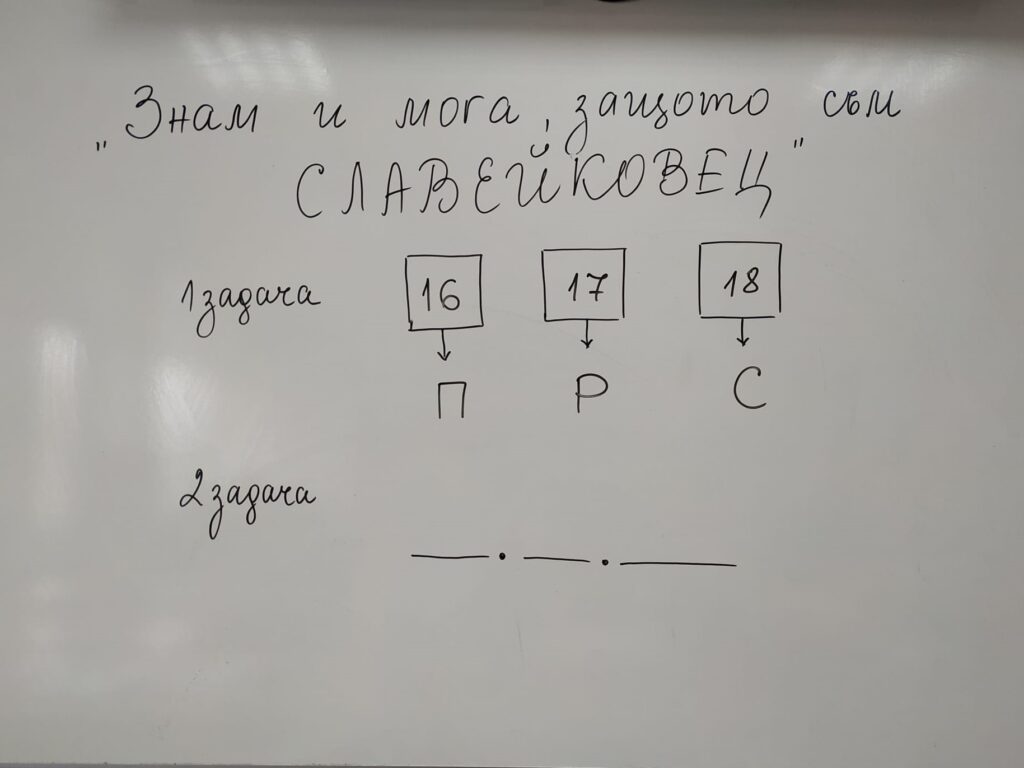 „Знам и мога, защото съм
СЛАВЕЙКОВЕЦ"
1 задача 16 17 18
П Р С
2 задача
___.___.___